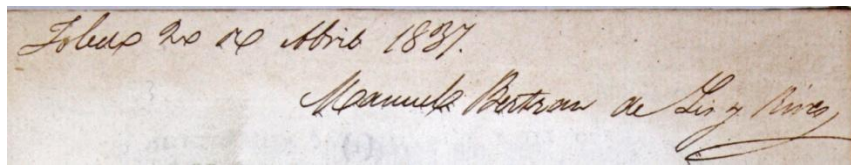 de Abril 1837.
Manuel Bertran de Lis y Rives